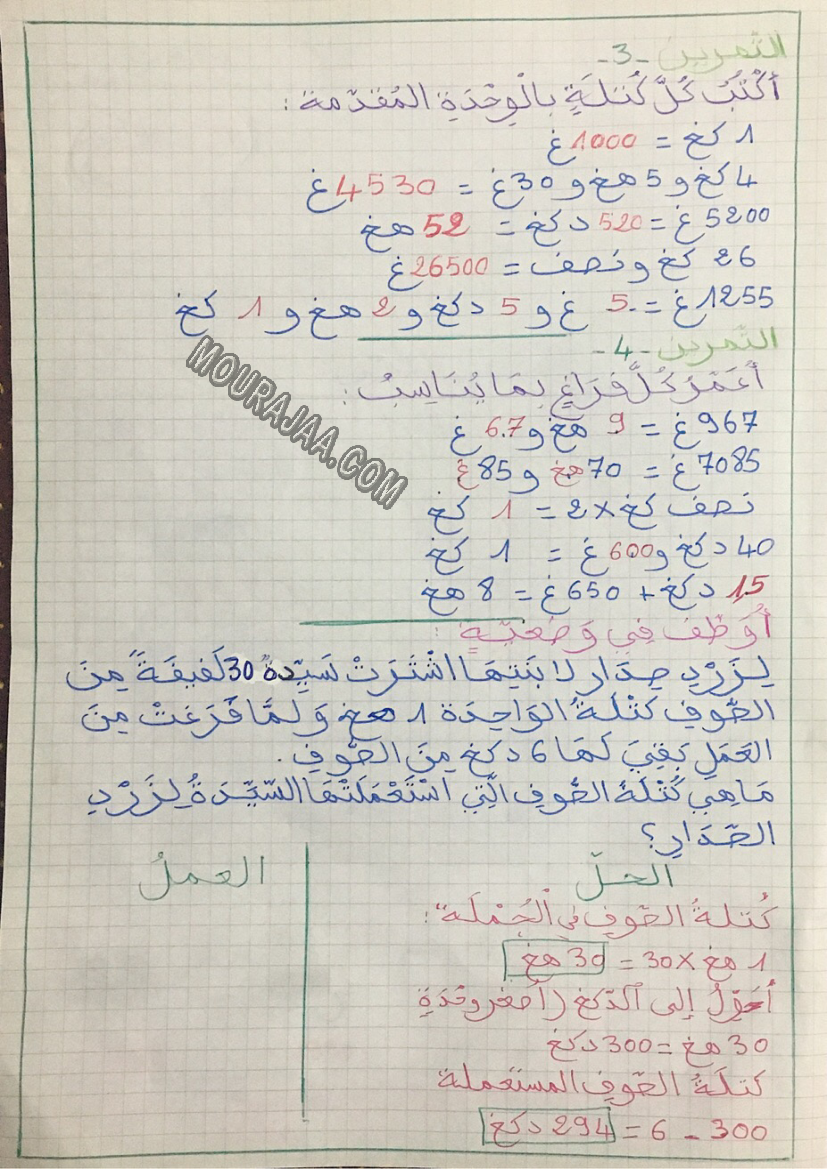 التمرين -3-
أَكْتُبُ كُلَّ كُتْلَةٍ بِالْوِحْدَةِ المُقَدَّمة :
1 كغ = 1000غ
4 كغ و 5 هغ و 30غ = 4530 غ
5200غ = 520 دكغ = 52 هغ
26 كغ ونصف = 26500غ
1255غ = 5 غ و 5 دكغ و 2 هغ و 1 كغ
التمرين -4-
أُعَمِّرُ كُلَّ فَرَاغٍ بِمَا يُنَاسِبُ :
967غ = 9 هغ و 6.7 غ
7085غ = 70هغ و 85غ
نصف كغ × 2 = 1 كغ
40 دكغ و 600غ = 1 كغ
1,5 دكغ + 650غ = 8 هغ
أُوَظِّفُ فِي وَضْعِيَّةٍ :
لِزَرْدِ صِدَارٍ لابْنَتِهَا اشْتَرَتْ سَيِّدة 30 لَفِيفَةً مِنَ
الصُّوفِ كُتْلَةُ الوَاحِدَة 1 هغ وَلمَّا فَرَغَتْ مِنَ
العَمَلِ بَقِيَ لَهَا 6 دكغ مِنَ الصُّوفِ .
مَا هِيَ كُتْلَةُ الصُّوفِ الَّتِي اسْتَعْمَلَتْهَا السَّيِّدَةُ لِزَرْدِ
الصِّدَارِ؟
الحلّ
العملُ
كُتلةُ الصّوفِ في الجُمْلَة :
1 هغ × 30 = 30 هغ
أُحَوِّلُ إلى الدّكغ (أصغر وحْدَةِ
30 هغ = 300 دكغ
كتلَةُ الصّوفِ المستعملة
300 - 6 = 294 دكغ
MOURAJAA.COM